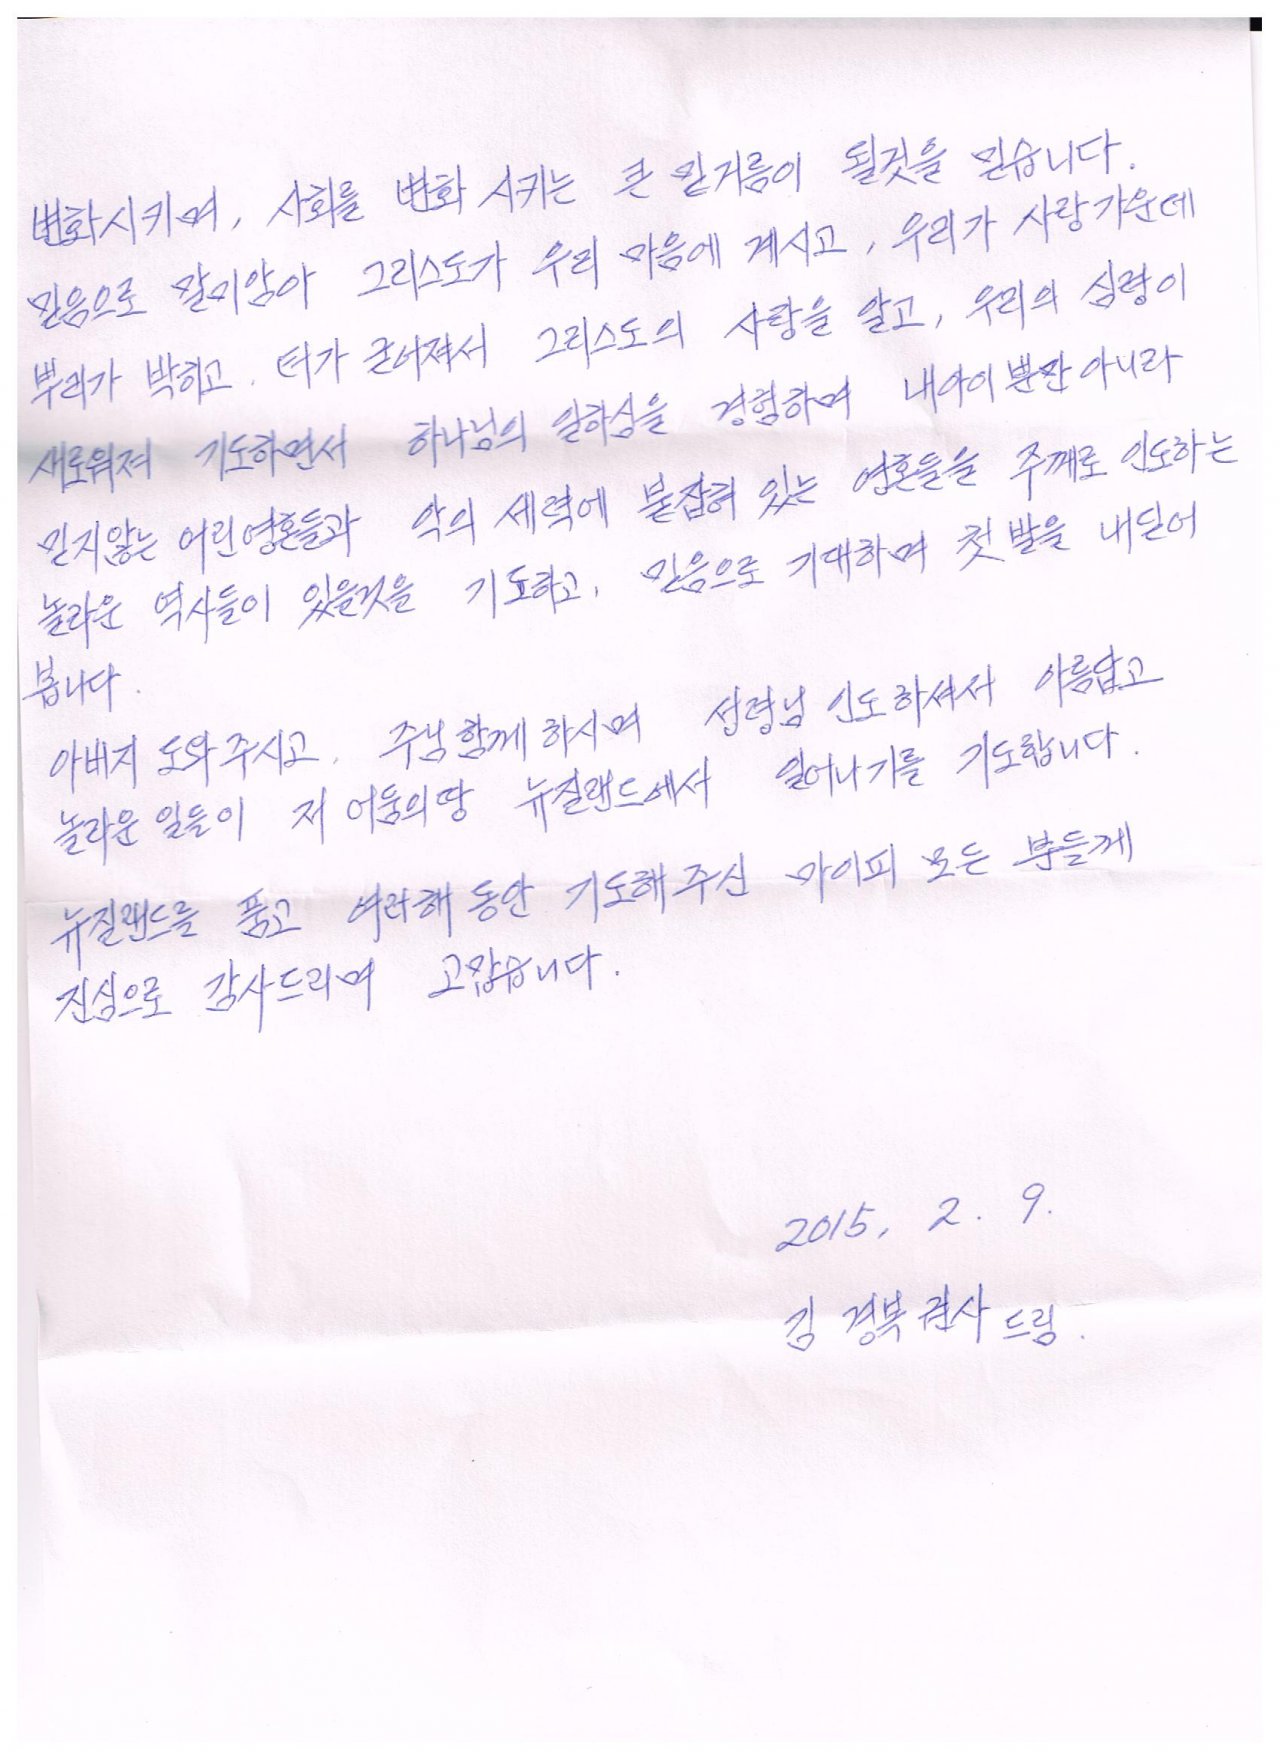 변화시키며, 사회를 변화 시키는 큰 밑거름이 될것을 믿습니다.
믿음으로 말미암아 그리스도가 우리 마음에 계시고, 우리가 사랑가운데
뿌리가 박히고, 터가 굳어져서 그리스도의 사랑을 알고, 우리의 심령이
새로워져 기도하면서 하나님의 일하심을 경험하며 내아이뿐만 아니라
믿지않는 어린영혼들과 악의 세력에 붙잡혀 있는 영혼들을 주께로 인도하는
놀라운 역사들이 있을것을 기도하고, 믿음으로 기대하며 첫 발을 내딛어
봅니다.
아버지 도와주시고, 주님함께 하시며 성령님 인도하셔서 아름답고
놀라운 일들이 저 어둠의땅 뉴질랜드에서 일어나기를 기도합니다.
뉴질랜드를 품고 여러해 동안 기도해주신 마이피 모든 분들께
진심으로 감사드리며 고맙습니다.
2015, 2. 9.
김 경복 권사 드림.